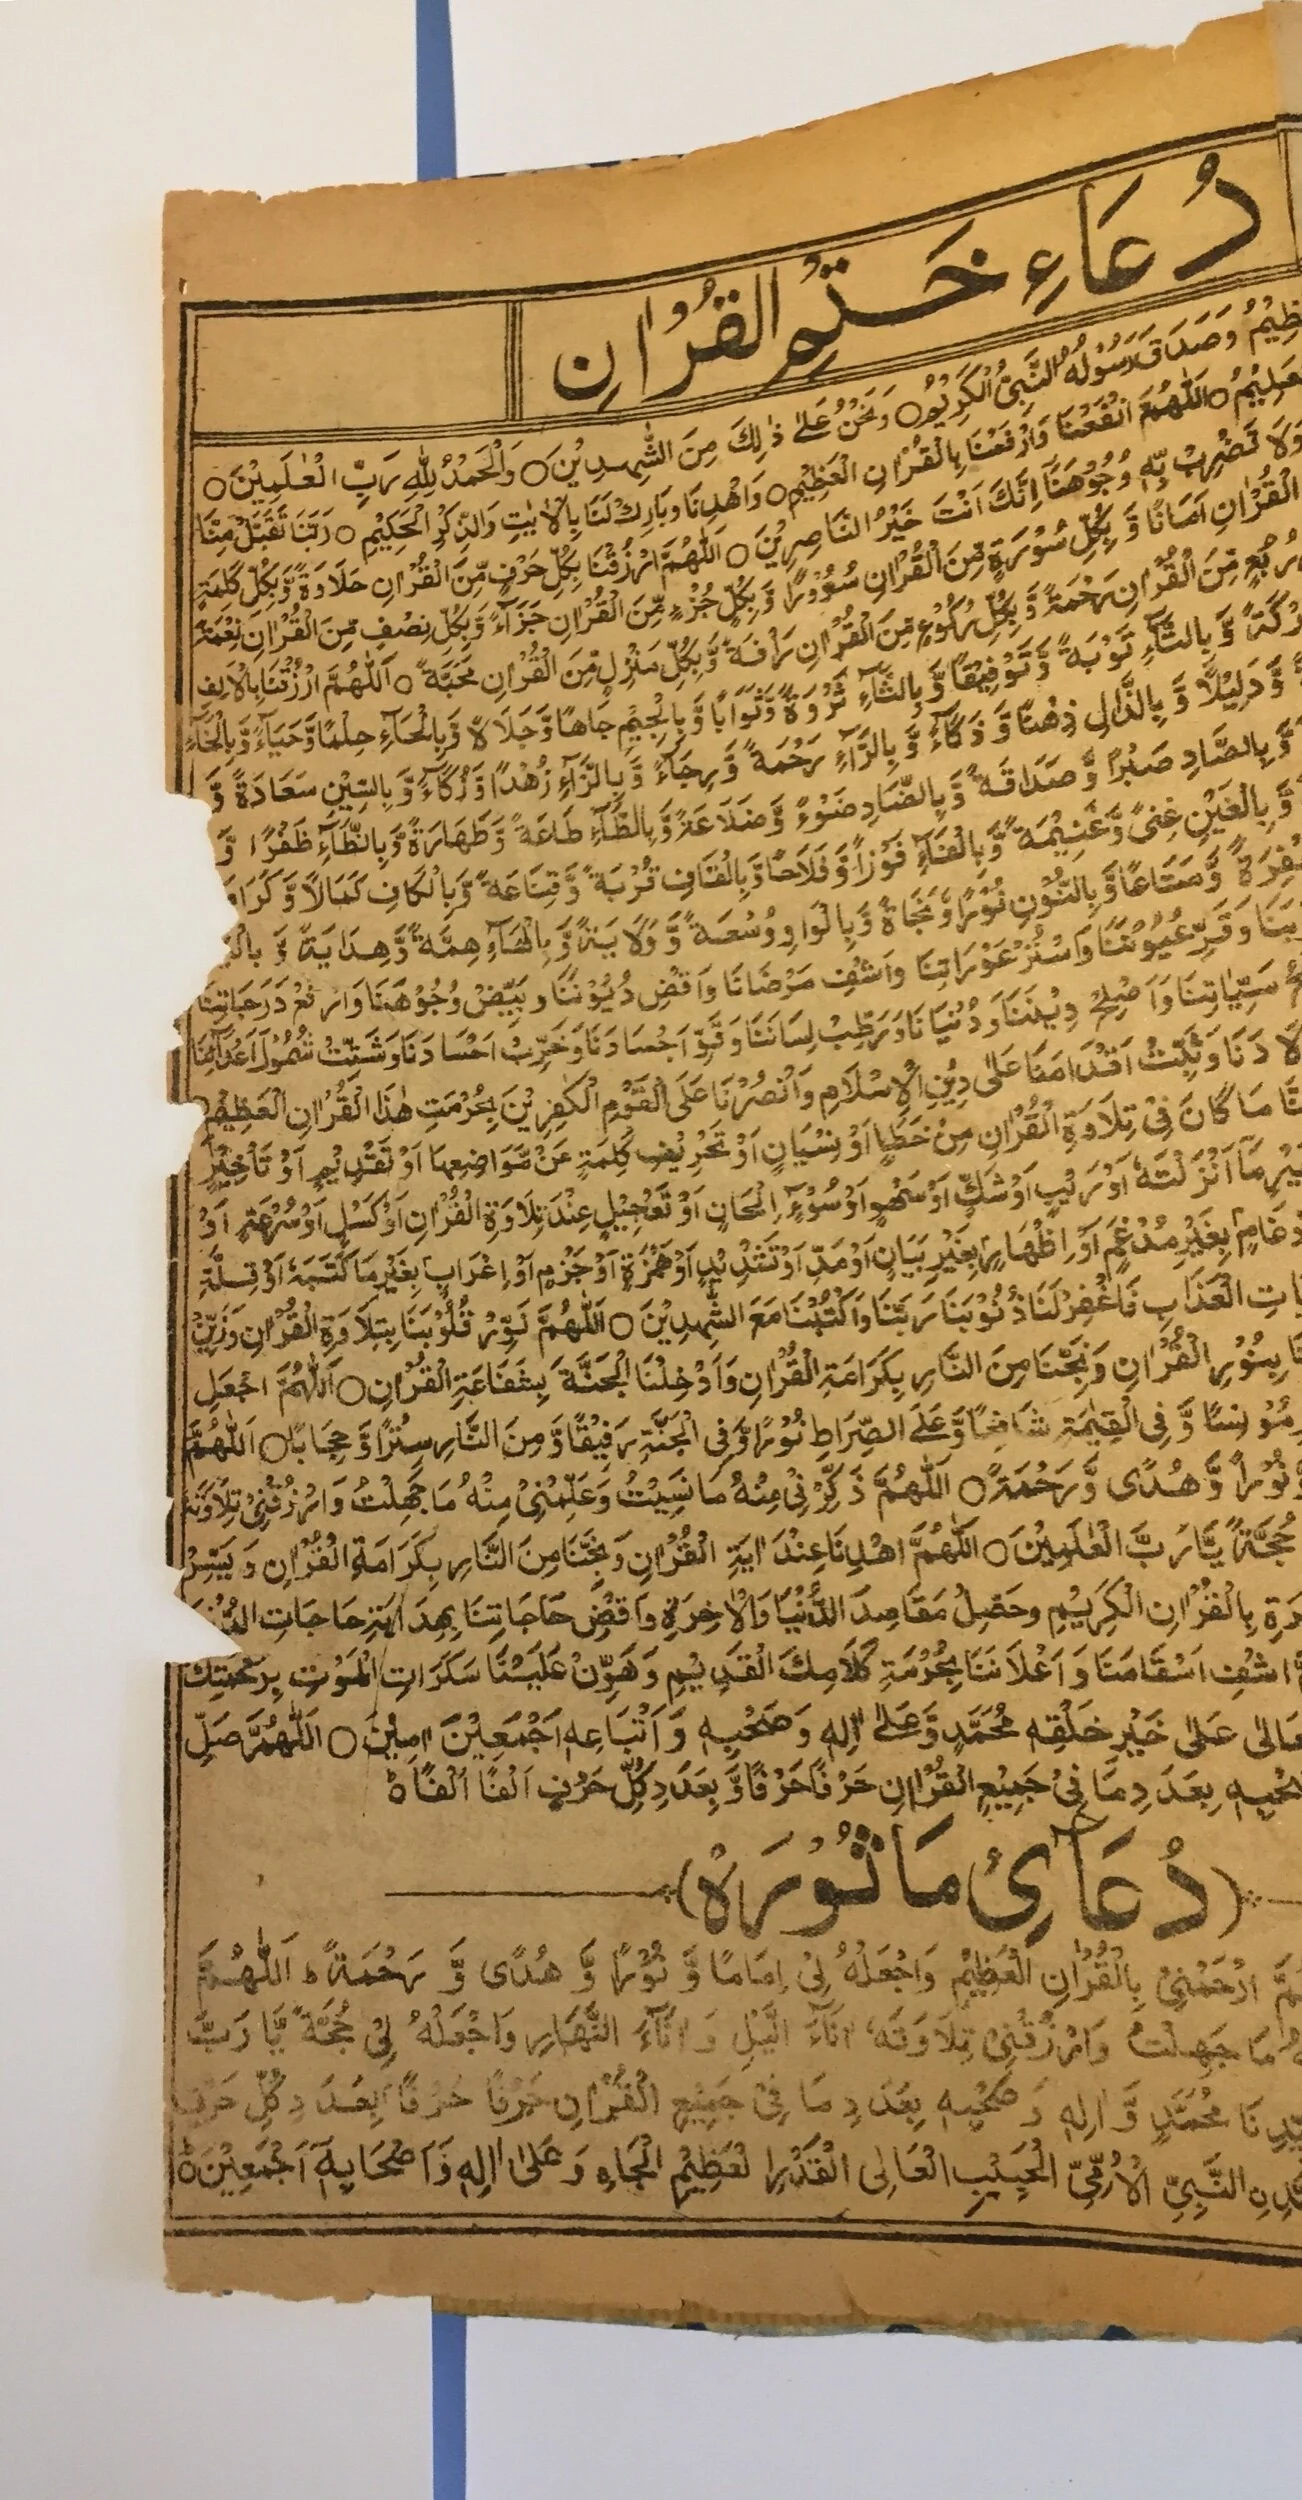 دُعَاءِ خَتْمِ الْقُرْاٰنِ
وَصَدَقَ رَسُوْلُهُ النَّبِىُّ الْكَرِيْمُ ○ وَنَحْنُ عَلٰى ذٰلِكَ مِنَ الشّٰهِدِيْنَ ○ وَالْحَمْدُ لِلّٰهِ رَبِّ الْعٰلَمِيْنَ ○
○ اَللّٰهُمَّ انْفَعْنَا وَارْفَعْنَا بِالْقُرْاٰنِ الْعَظِيْمِ ○ وَاهْدِنَا وَبَارِكْ لَنَا بِالْاٰيٰتِ وَالذِّكْرِ الْحَكِيْمِ ○ رَبَّنَا تَقَبَّلْ مِنَّا
وَلَا تَضْرِبْ بِهٖ وُجُوْهَنَا اِنَّكَ اَنْتَ خَيْرُ النَّاصِرِيْنَ ○ اَللّٰهُمَّ ارْزُقْنَا بِكُلِّ حَرْفٍ مِّنَ الْقُرْاٰنِ حَلَاوَةً وَّبِكُلِّ كَلِمَةٍ
الْقُرْاٰنِ اَمَانًا وَّ بِكُلِّ سُوْرَةٍ مِّنَ الْقُرْاٰنِ سُرُوْرًا وَّ بِكُلِّ جُزْءٍ مِّنَ الْقُرْاٰنِ جَزَآءً وَّبِكُلِّ نِصْفٍ مِّنَ الْقُرْاٰنِ نِعْمَةً
رُبْعٍ مِّنَ الْقُرْاٰنِ رَحْمَةً وَّبِكُلِّ رُكُوْعٍ مِّنَ الْقُرْاٰنِ رَاْفَةً وَّبِكُلِّ مَنْزِلٍ مِّنَ الْقُرْاٰنِ مَحَبَّةً ○ اَللّٰهُمَّ ارْزُقْنَا بِالْاَلِفِ
وَّ بِالتَّآءِ تَوْبَةً وَّ تَوْفِيْقًا وَّ بِالثَّآءِ ثَرْوَةً وَّثَوَابًا وَّ بِالْجِيْمِ جَاهًا وَّجَلَالًا وَّ بِالْحَآءِ حِلْمًا وَّحَيَآءً وَّبِالْخَآءِ
وَّ دَلِيْلًا وَّ بِالذَّالِ ذِهْنًا وَّ ذَكَآءً وَّ بِالرَّآءِ رَحْمَةً وَّرِجَآءً وَّ بِالزَّآءِ زُهْدًا وَّزَكَآءً وَّ بِالسِّيْنِ سَعَادَةً وَّ
وَّ بِالصَّادِ صَبْرًا وَّ صَدَاقَةً وَّ بِالضَّادِ ضَوْءً وَّ ضَلَاعَةً وَّبِالطَّآءِ طَاعَةً وَّطَهَارَةً وَّبِالظَّآءِ ظَفْرًا وَّ
وَّ بِالْغَيْنِ غِنًى وَّ غَنِيْمَةً وَّ بِالْفَآءِ فَوْزًا وَّ فَلَاحًا وَّبِالْقَافِ قُرْبَةً وَّ قِنَاعَةً وَّبِالْكَافِ كَمَالًا وَّ
وَّ مَتَاعًا وَّ بِالنُّوْنِ نُوْرًا وَّ نَجَاةً وَّبِالْوَاوِ وُسْعَةً وَّ وَلَايَةً وَّ بِالْهَآءِ هِمَّةً وَّ هِدَايَةً وَّ
عُيُوْبَنَا وَاسْتُرْ عَوْرَاتِنَا وَاشْفِ مَرْضَانَا وَاقْضِ دُيُوْنَنَا وَبَيِّضْ وُجُوْهَنَا وَارْفَعْ دَرَجَاتِنَا
سَيِّاٰتِنَا وَاَصْلِحْ دِيْنَنَا وَدُنْيَانَا وَرَطِّبْ لِسَانَنَا وَقَوِّ اَجْسَادَنَا وَخَرِّبْ وَشَتِّتْ شُمُوْلَ اَعْدَآئِنَا
وَثَبِّتْ اَقْدَامَنَا عَلٰى دِيْنِ الْاِسْلَامِ وَانْصُرْنَا عَلَى الْقَوْمِ الْكٰفِرِيْنَ بِحُرْمَتِ هٰذَا الْقُرْاٰنِ الْعَظِيْمِ
مَا كَانَ فِىْ تِلَاوَةِ الْقُرْاٰنِ مِنْ خَطَاٍ اَوْ نِسْيَانٍ اَوْ تَحْرِيْفِ كَلِمَةٍ عَنْ مَّوَاضِعِهَا اَوْ تَقْدِيْمٍ اَوْ تَاْخِيْرٍ
مَآ اَنْزَلْتَهٗ اَوْ رَيْبٍ اَوْ شَكٍّ اَوْ سَهْوٍ اَوْ سُوْٓءِ اِلْحَانٍ اَوْ تَعْجِيْلٍ عِنْدَ تِلَاوَةِ الْقُرْاٰنِ اَوْ كَسَلٍ اَوْ سُرْعَةٍ اَوْ
بِغَيْرِ مُدْغَمٍ اَوْ اِظْهَارٍ بِغَيْرِ بَيَانٍ اَوْ مَدٍّ اَوْ تَشْدِيْدٍ اَوْ هَمْزَةٍ اَوْ جَزْمٍ اَوْ اِعْرَابٍ بِغَيْرِ مَا كَتَبَهٗ اَوْ قِلَّةِ
الْعَذَابِ فَاغْفِرْ لَنَا ذُنُوْبَنَا رَبَّنَا وَاكْتُبْنَا مَعَ الشّٰهِدِيْنَ ○ اَللّٰهُمَّ نَوِّرْ قُلُوْبَنَا بِتِلَاوَةِ الْقُرْاٰنِ وَزَيِّنْ
بِنُوْرِ الْقُرْاٰنِ وَنَجِّنَا مِنَ النَّارِ بِكَرَامَةِ الْقُرْاٰنِ وَاَدْخِلْنَا الْجَنَّةَ بِشَفَاعَةِ الْقُرْاٰنِ ○ اَللّٰهُمَّ اجْعَلِ
مُوْنِسًا وَّ فِى الْقِيٰمَةِ شَافِعًا وَّعَلَى الصِّرَاطِ نُوْرًا وَّفِى الْجَنَّةِ رَفِيْقًا وَّمِنَ النَّارِ سِتْرًا وَّ حِجَابًا ○ اَللّٰهُمَّ
نُوْرًا وَّ هُدًى وَّ رَحْمَةً ○ اَللّٰهُمَّ ذَكِّرْنِىْ مِنْهُ مَا نَسِيْتُ وَعَلِّمْنِىْ مِنْهُ مَا جَهِلْتُ وَارْزُقْنِىْ تِلَاوَتَهٗ
حُجَّةً يَّا رَبَّ الْعٰلَمِيْنَ ○ اَللّٰهُمَّ اهْدِنَا عِنْدَ اٰيَةِ الْقُرْاٰنِ وَنَجِّنَا مِنَ النَّارِ بِكَرَامَةِ الْقُرْاٰنِ وَيَسِّرْ
بِالْقُرْاٰنِ الْكَرِيْمِ وَحَصِّلْ مَقَاصِدَ الدُّنْيَا وَالْاٰخِرَةِ وَاقْضِ حَاجَاتِنَا حَاجَاتِ الدُّنْيَا
اشْفِ اَسْقَامَنَا وَ اَعْلَانَنَا بِحُرْمَةِ كَلَامِكَ الْقَدِيْمِ وَهَوِّنْ عَلَيْنَا سَكَرَاتِ الْمَوْتِ بِرَحْمَتِكَ
عَلٰى خَيْرِ خَلْقِهٖ مُحَمَّدٍ وَّعَلٰى اٰلِهٖ وَصَحْبِهٖ وَ اَتْبَاعِهٖ اَجْمَعِيْنَ اٰمِيْنَ ○ اَللّٰهُمَّ صَلِّ
بِعَدَدِ مَا فِىْ جَمِيْعِ الْقُرْاٰنِ حَرْفًا حَرْفًا وَّ بِعَدَدِ كُلِّ حَرْفٍ اَلْفًا اَلْفًا ط
(دُعَآئِ مَاثُوْرَهْ)
ارْحَمْنِىْ بِالْقُرْاٰنِ الْعَظِيْمِ وَاجْعَلْهُ لِىْ اِمَامًا وَّ نُوْرًا وَّ هُدًى وَّ رَحْمَةً ط اَللّٰهُمَّ
مَا جَهِلْتُ وَارْزُقْنِىْ تِلَاوَتَهٗ اٰنَآءَ الَّيْلِ وَ اٰنَآءَ النَّهَارِ وَاجْعَلْهُ لِىْ حُجَّةً يَّا رَبَّ
مُحَمَّدٍ وَّ اٰلِهٖ وَ صَحْبِهٖ بِعَدَدِ مَا فِىْ جَمِيْعِ الْقُرْاٰنِ حَرْفًا حَرْفًا بِعَدَدِ كُلِّ حَرْفٍ
النَّبِىِّ الْاُمِّىِّ الْحَبِيْبِ الْعَالِى الْقَدْرِ الْعَظِيْمِ الْجَاهِ وَعَلٰى اٰلِهٖ وَاَصْحَابِهٖٓ اَجْمَعِيْنَ ط